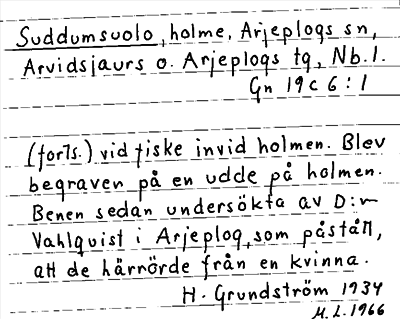 Suddumsuolo, holme, Arjeplogs sn,
Arvidsjaurs o. Arjeplogs tg, Nb. l.
Gn 19c 6 : 1
(forts.) vid fiske invid holmen. Blev
begraven på en udde på holmen.
Benen sedan undersökta av D:r
Vahlquist i Arjeplog, som påstått,
att de härrörde från en kvinna.
H. Grundström 1934
M. L. 1966